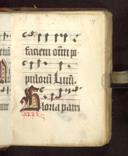 faciem om̄i p̄
pulorū Lum̄.
Gloria patri